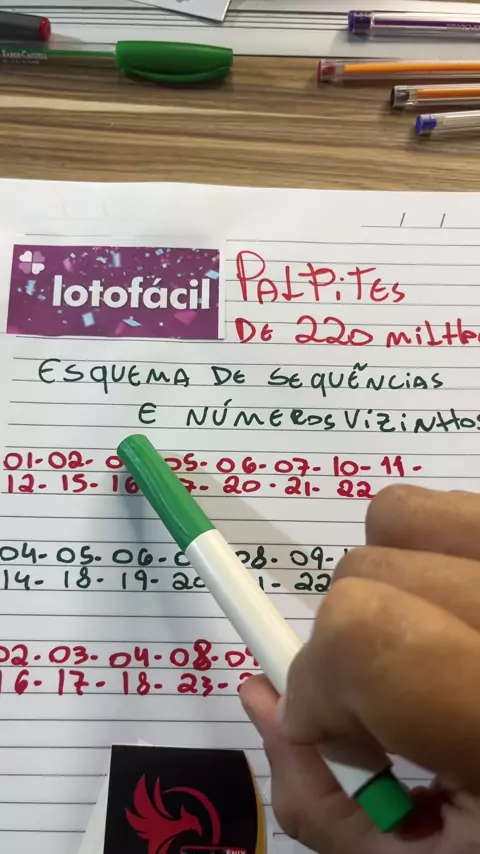 FABER-CASTELL
lotofácil
PALPITES
DE 220 MILH
ESQUEMA DE SEQUÊNCIAS
E NÚMEROS VIZINHOS
01-02- 05- 06- 07- 10- 11-
12- 15- 16 20- 21- 22
04- 05- 06- 08- 09-
14- 18- 19- 22
02- 03- 04- 08-
16- 17- 18- 23-